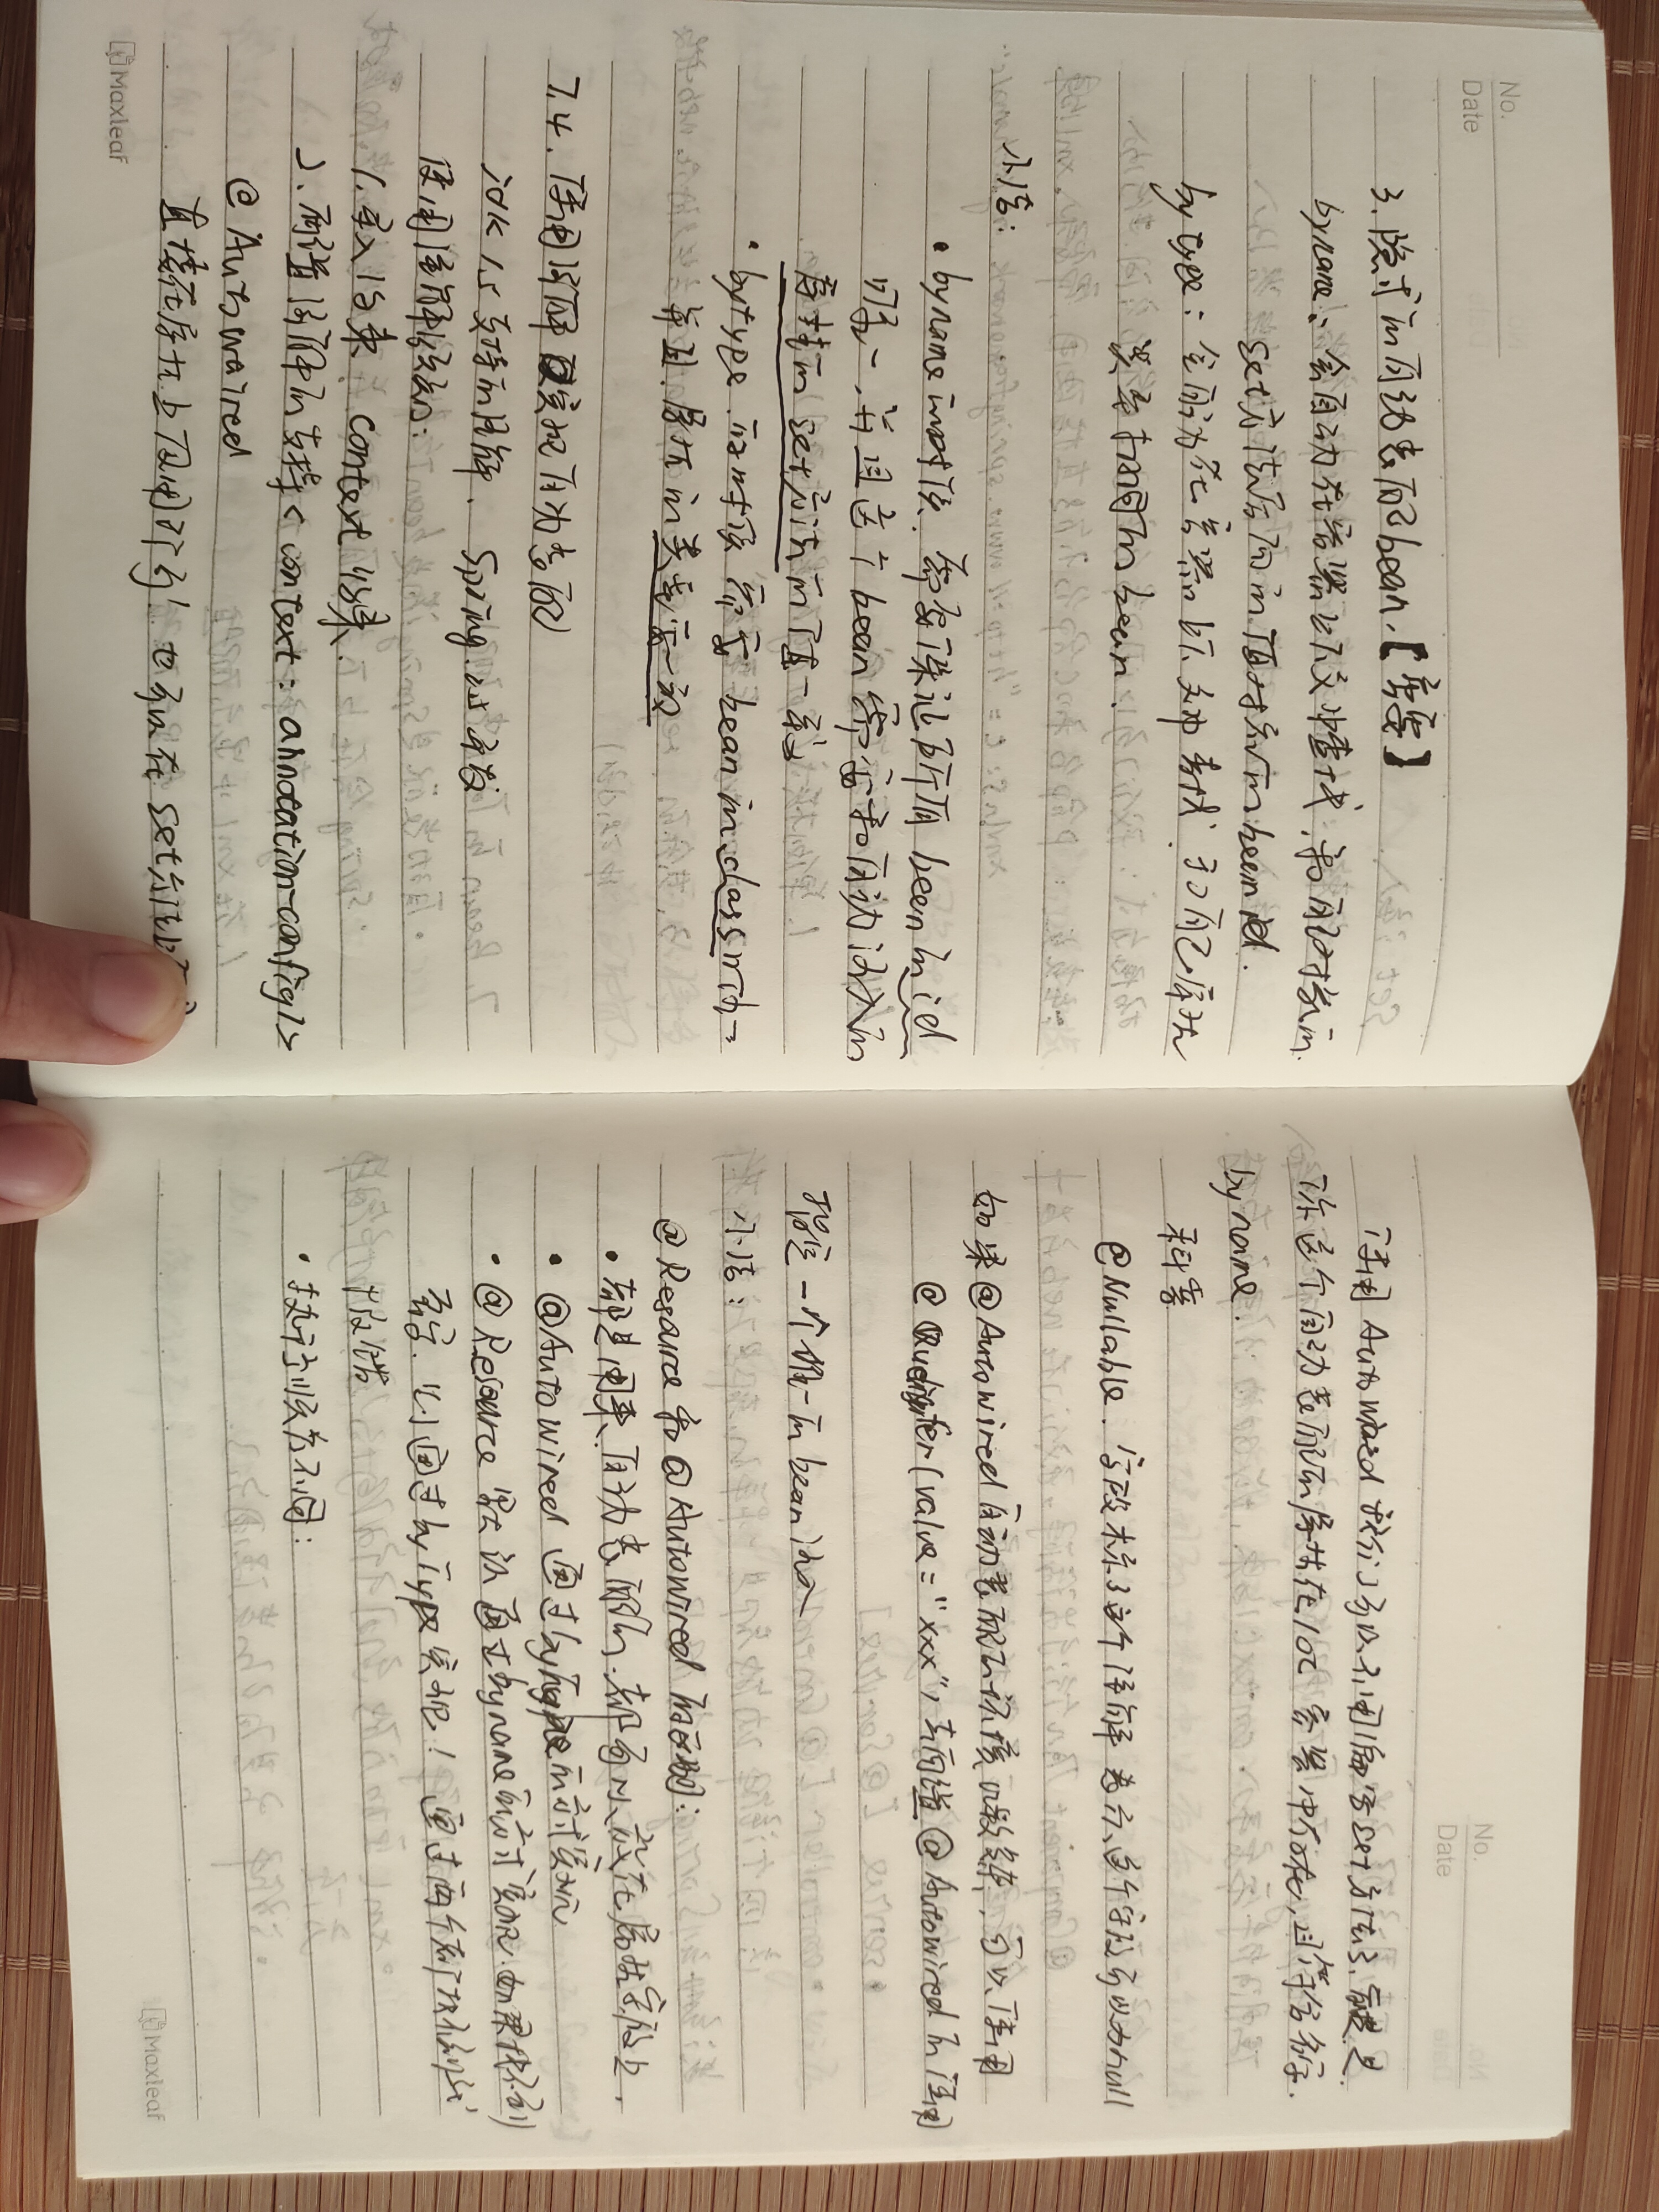 No.
Date
3. 隐式的自动装配bean.【重要】
byname: 会自动在容器上下文中查找, 和自己对象
set方法后面的值对应的beanid.
bytype: 会自动在容器上下文中查找, 和自己属性
类型相同的bean.
小结:
• byname的时候, 需要保证所有bean的id
唯一, 并且这个bean需要和自动注入的
属性的set方法的值一致
• bytype的时候 需要bean的class唯一
并且属性的类型一致
7.4. 使用注解实现自动装配
jdk 1.5 支持的注解, Spring 2.5
使用注解须知:
1. 导入约束, context约束.
2. 配置注解的支持 <context:annotation-config/>
@Autowired
直接在属性上使用即可! 也可以在set方法上
Maxleaf
No.
Date
使用Autowired 我们可以不用编写set方法了, 前提是
你这个自动装配的属性在IOC容器中存在, 且符合名字
byname.
科普
@Nullable. 字段标了这个注解 表示这个字段可以为null
如果@Autowired自动装配的环境比较复杂, 可以使用
@Qualifier(value="xxx")去配置@Autowired的使用
指定一个唯一的bean注入
小结:
@Resource 和@Autowired 的区别:
• 都是用来自动装配的, 都可以放在属性字段上.
• @Autowired 通过bytype的方式实现
• @Resource 默认通过byname的方式实现. 如果找不到
名字, 则通过bytype实现! 如果两个都找不到
报错
• 执行顺序不同:
Maxleaf